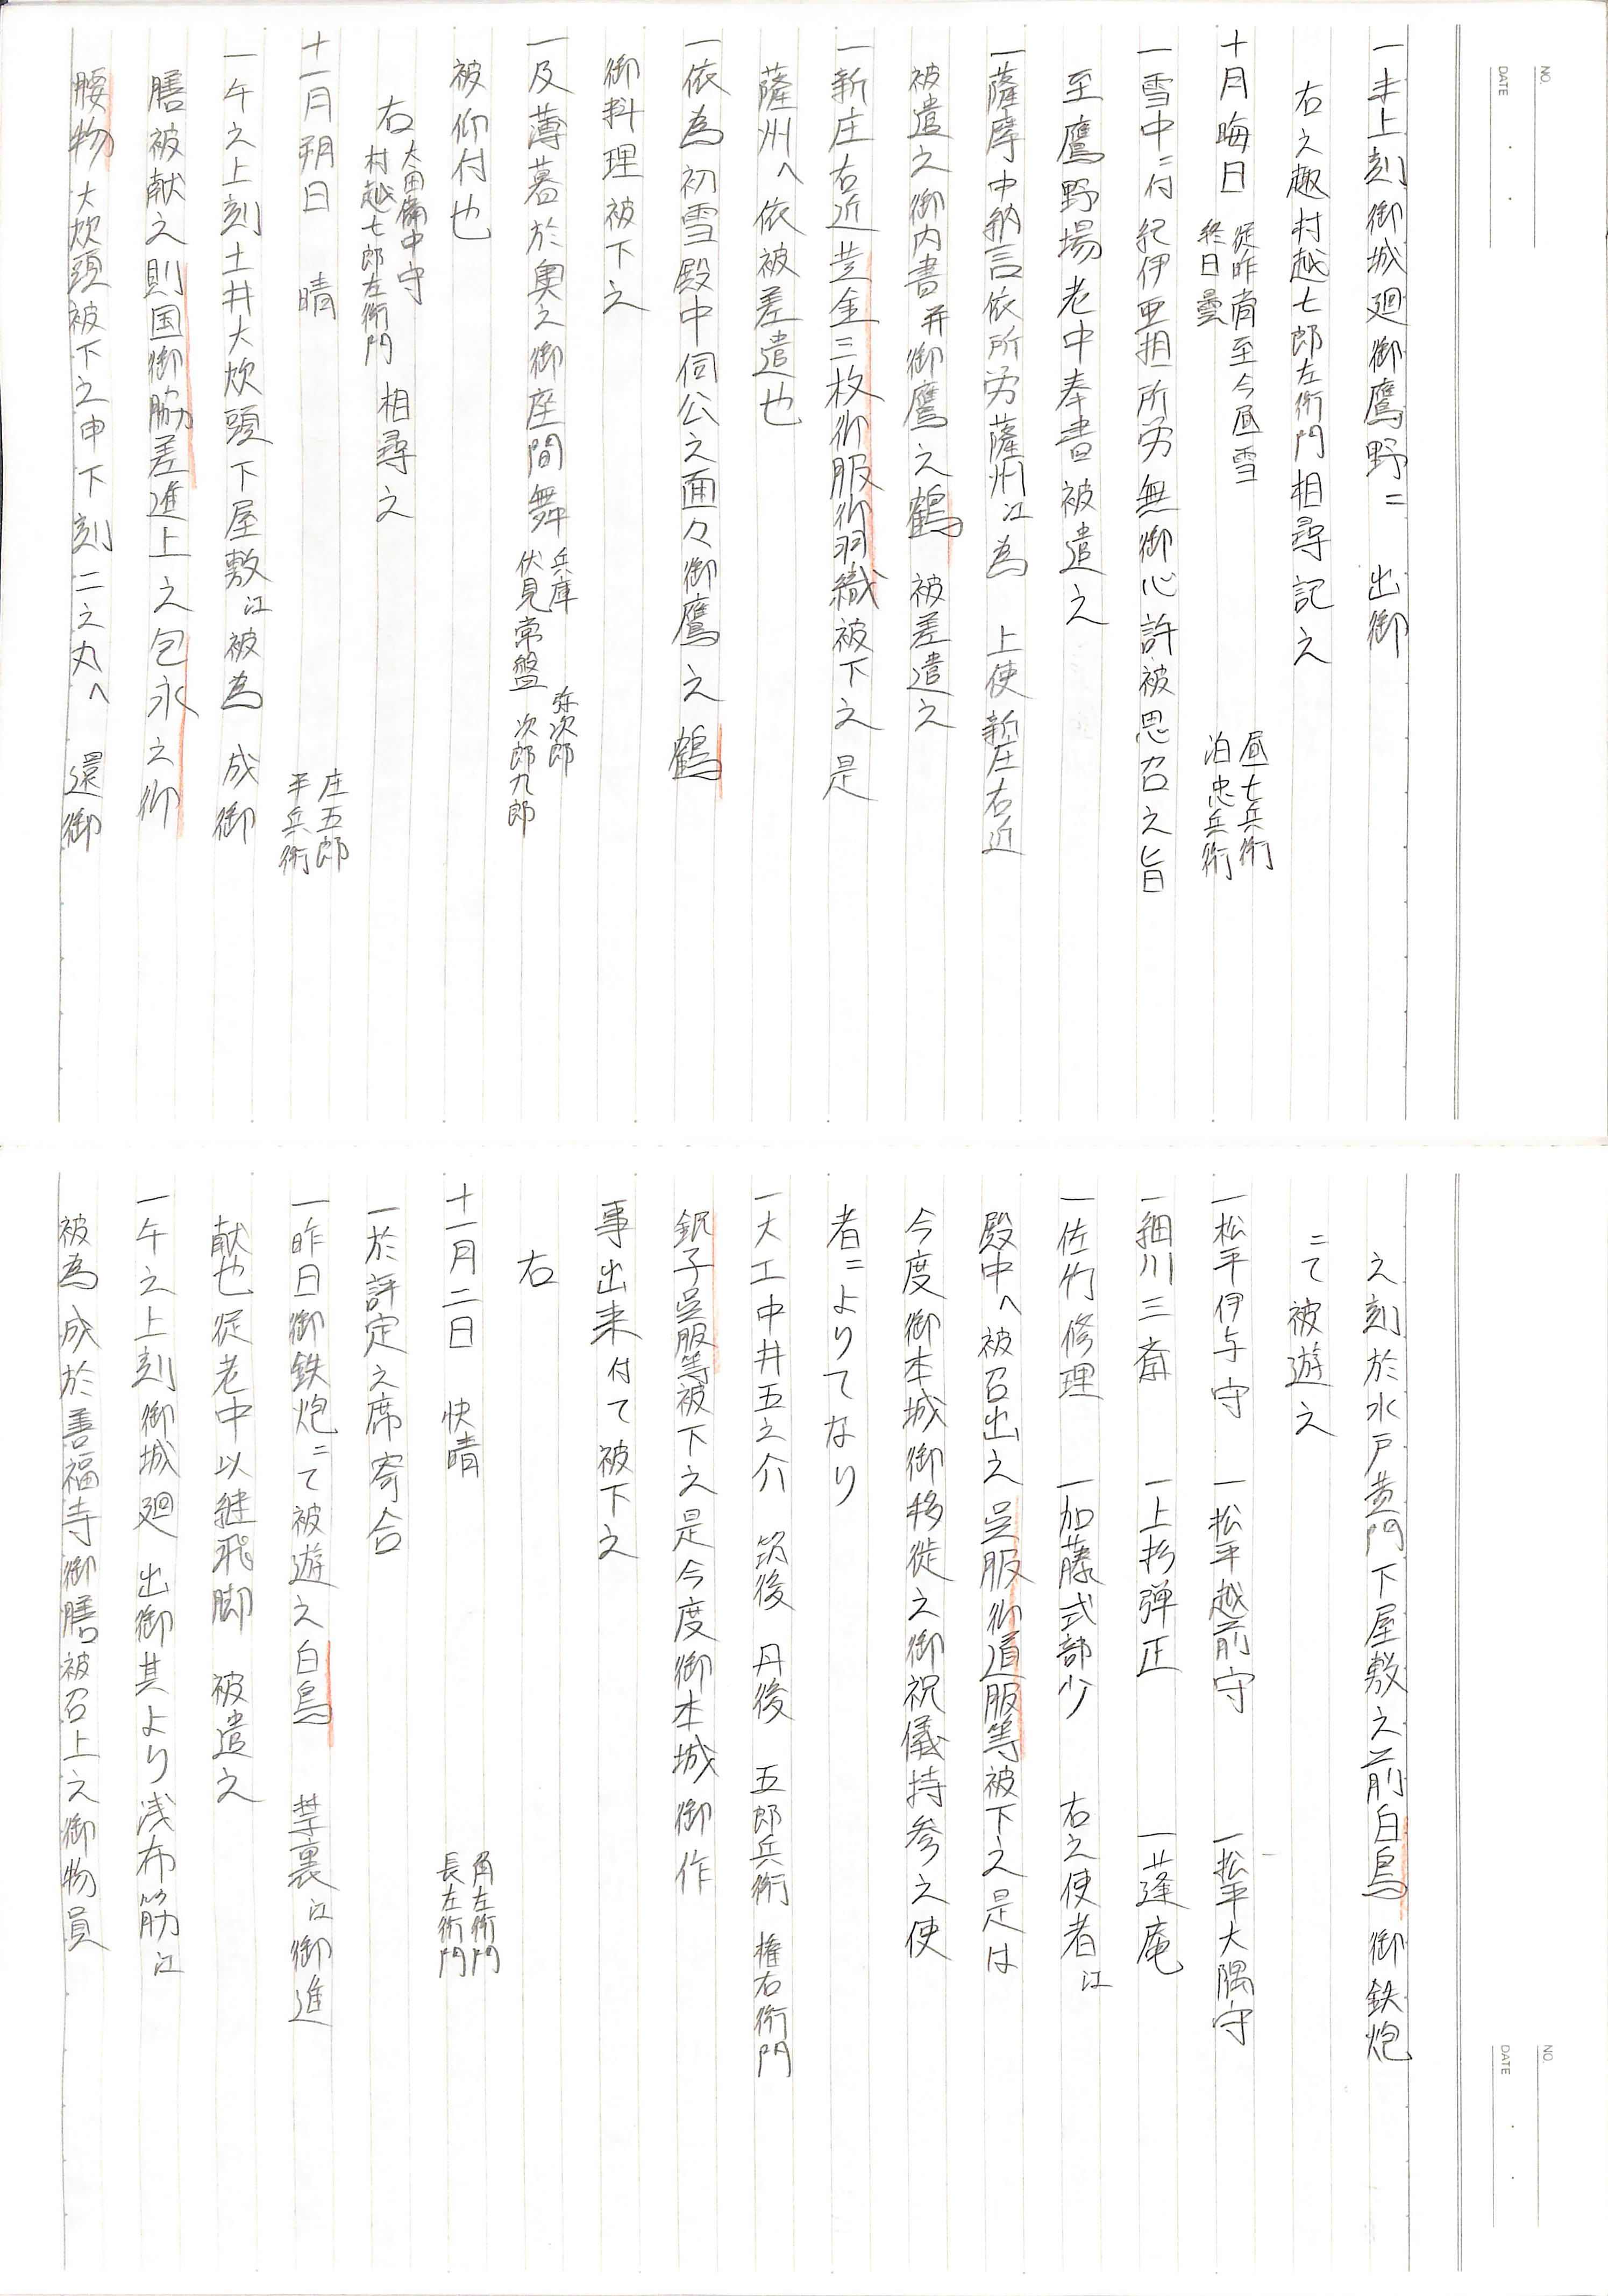 NO.
DATE
一未上刻御城廻御鷹野ニ　出御
右之趣村越七郎左衛門相尋記之
十月晦日　従昨宵至今昼雪　昼七兵衛
終日曇　泊忠兵衛
一雪中ニ付紀伊亜相所労無御心許被思召之旨
至鷹野場老中奉書被遣之
一薩摩中納言依所労薩州江為　上使新庄右近
被遣之御内書并御鷹之鶴　被差遣之
一新庄右近茫金三枚御服御羽織被下之是
薩州へ依被差遣也
一依為初雪殿中伺公之面々御鷹之鶴
御料理被下之
一及薄暮於奥之御座間舞　兵庫　弥次郎
伏見常盤　次郎九郎
被仰付也
右　太田備中守
村越七郎左衛門　相尋之
十一月朔日　晴　庄五郎
平兵衛
一午之上刻土井大炊頭下屋敷江被為　成御
膳被献之則国御脇差進上之包永之御
腰物大炊頭被下之申下刻二之丸へ　還御
NO.
DATE
之刻於水戸黄門下屋敷之前白鳥　御鉄炮
ニて被遊之
一松平伊与守　一松平越前守　一松平大隅守
一細川三斎　一上杉弾正　一蓬庵
一佐竹修理　一加藤式部少　右之使者江
殿中へ被召出之呉服御道服等被下之是は
今度御本城御移徙之御祝儀持参之使
者ニよりてなり
一大工中井五之介　筑後　丹後　五郎兵衛　権右衛門
銀子呉服等被下之是今度御本城御作
事出来付て被下之
右
十一月二日　快晴　角左衛門
長左衛門
一於評定之席寄合
一昨日御鉄炮ニて被遊之白鳥　禁裏江御進
献也従老中以継飛脚　被遣之
一午之上刻御城廻　出御其より浅布筋江
被為成於善福寺御膳被召上之御物員